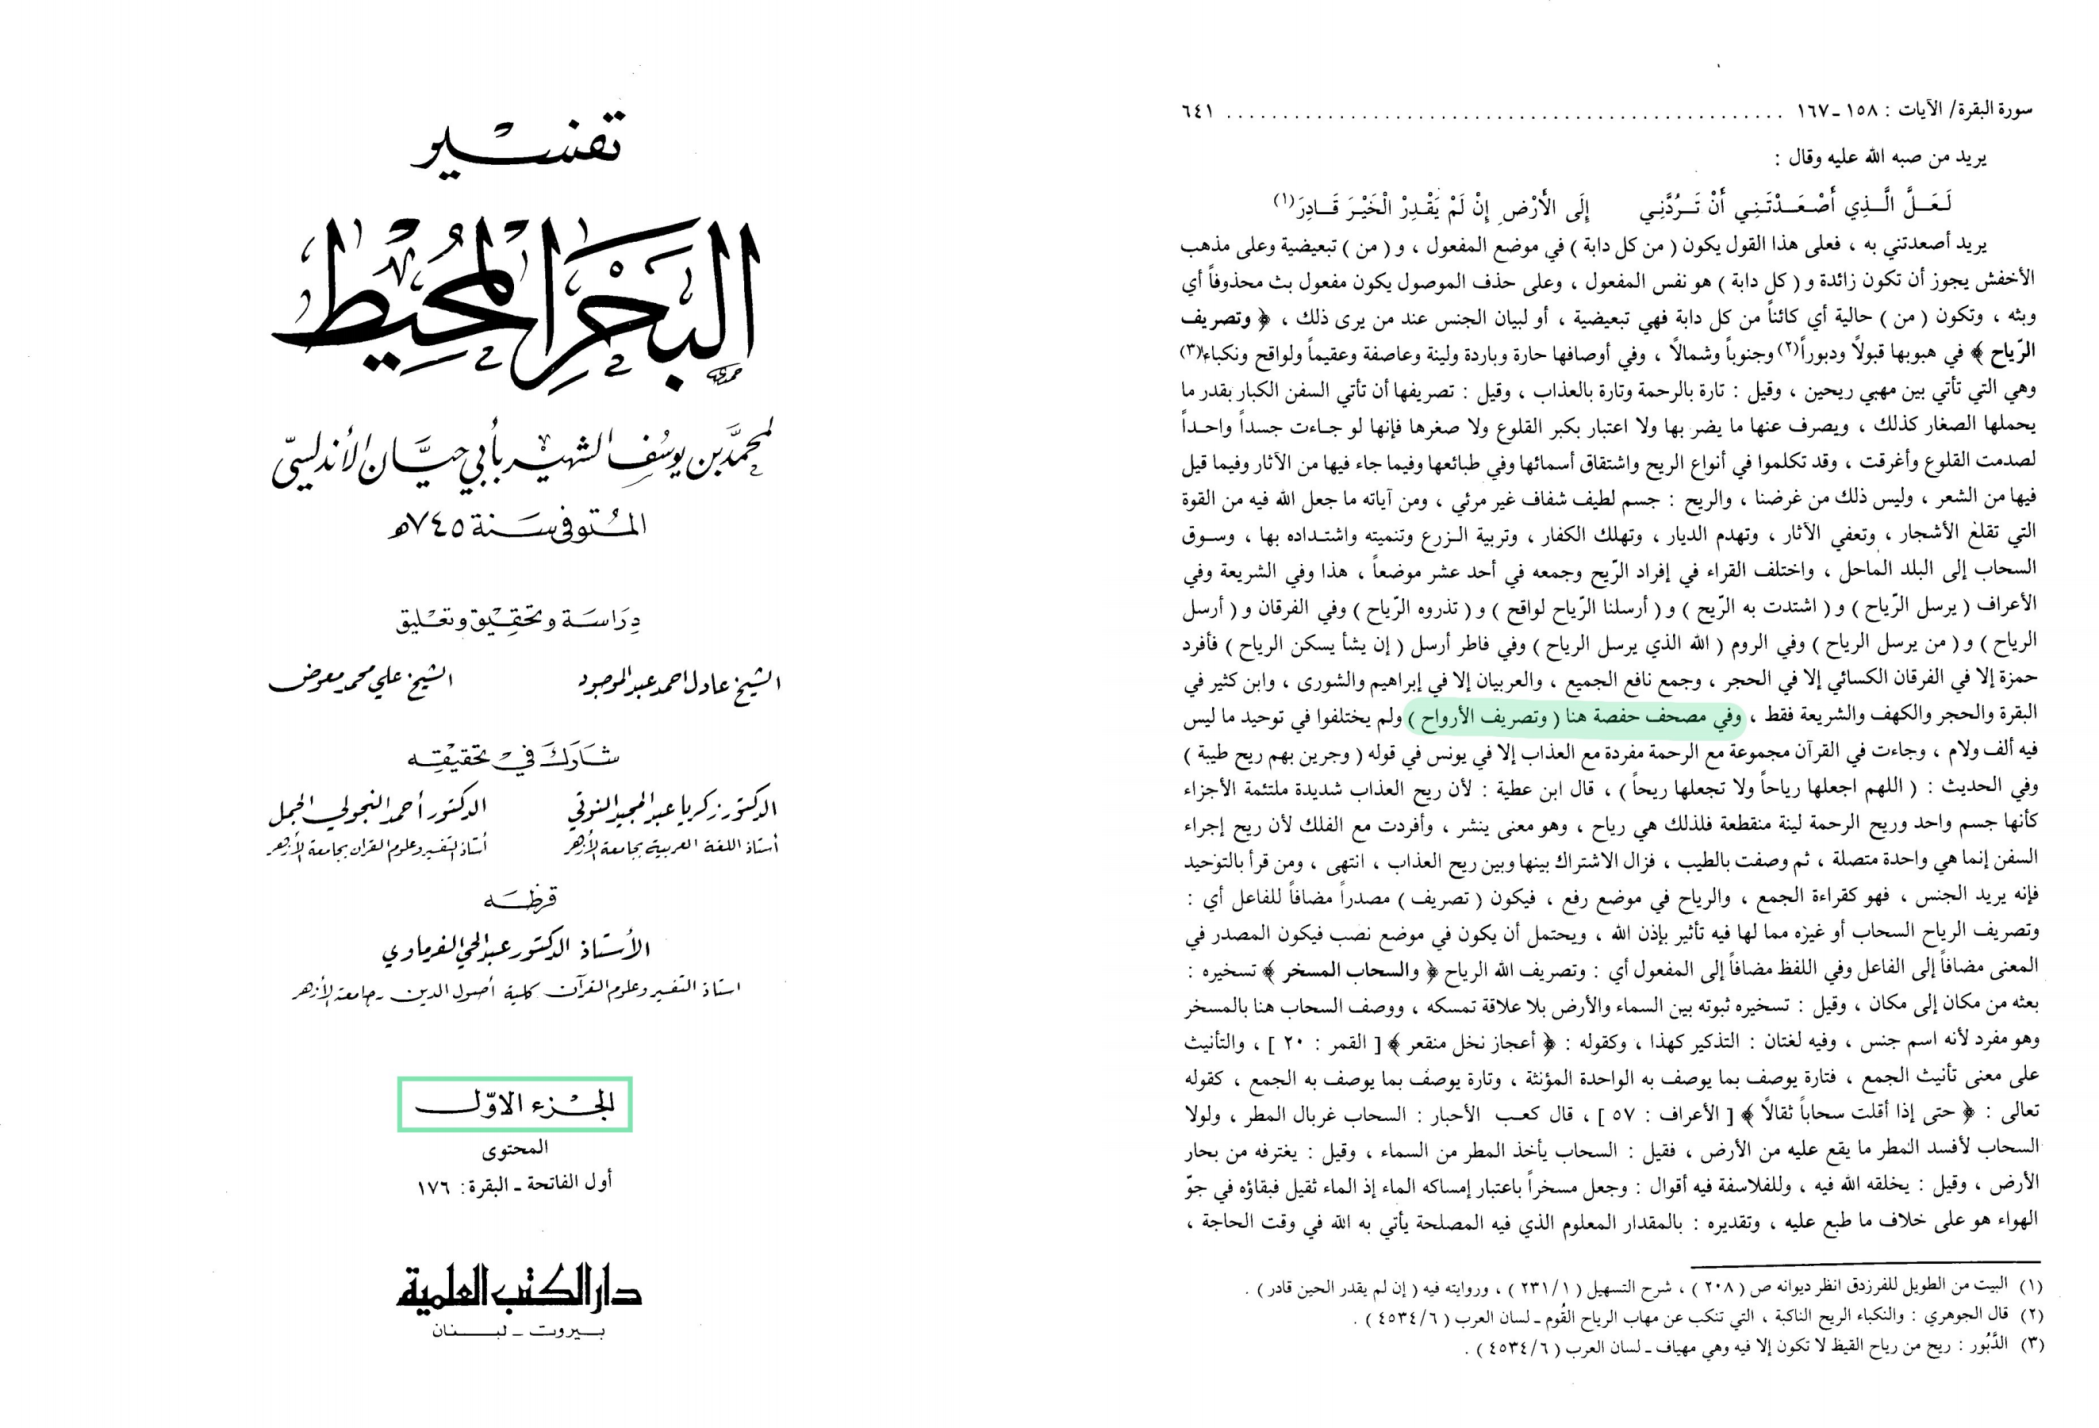 تفسير
البحر المحيط
لمحمد بن يوسف الشهير بأبي حيان الأندلسي
المتوفى سنة ٧٤٥ هـ
دراسة وتحقيق وتعليق
الشيخ عادل احمد عبد الموجود
الشيخ علي محمد معوض
شارك في تحقيقه
الدكتور زكريا عبد المجيد النوتي
أستاذ اللغة العربية بجامعة الأزهر
الدكتور أحمد النجولي الجمل
أستاذ التفسير وعلوم القرآن بجامعة الأزهر
قرظه
الأستاذ الدكتور عبد الحي الفرماوي
استاذ التفسير وعلوم القرآن كلية أصول الدين جامعة الأزهر
الجزء الاوّل
المحتوى
أول الفاتحة ـ البقرة: ١٧٦
دار الكتب العلمية
بيروت ـ لبنان
سورة البقرة/ الآيات : ١٥٨ ـ ١٦٧ ........................................ ٦٤١
يريد من صبه الله عليه وقال :
لَعَلَّ الَّذِي أَصْعَدْتَنِي أَنْ تَرُدَّنِي إِلَى الأَرْضِ إِنْ لَمْ يَقْدِرْ الْخَيْرَ قَادِرَ(١)
يريد أصعدتني به ، فعلى هذا القول يكون ( من كل دابة ) في موضع المفعول ، و ( من ) تبعيضية وعلى مذهب
الأخفش يجوز أن تكون زائدة و ( كل دابة ) هو نفس المفعول ، وعلى حذف الموصول يكون مفعول بث محذوفاً أي
وبثه ، وتكون ( من ) حالية أي كائناً من كل دابة فهي تبعيضية ، أو لبيان الجنس عند من يرى ذلك ، ﴿ وتصريف
الرّياح ﴾ في هبوبها قبولاً ودبوراً(٢) وجنوباً وشمالاً ، وفي أوصافها حارة وباردة ولينة وعاصفة وعقيماً ولواقح ونكباء(٣)
وهي التي تأتي بين مهبي ريحين ، وقيل : تارة بالرحمة وتارة بالعذاب ، وقيل : تصريفها أن تأتي السفن الكبار بقدر ما
يحملها الصغار كذلك ، ويصرف عنها ما يضر بها ولا اعتبار بكبر القلوع ولا صغرها فإنها لو جاءت جسداً واحداً
لصدمت القلوع وأغرقت ، وقد تكلموا في أنواع الريح واشتقاق أسمائها وفي طبائعها وفيما جاء فيها من الآثار وفيما قيل
فيها من الشعر ، وليس ذلك من غرضنا ، والريح : جسم لطيف شفاف غير مرئي ، ومن آياته ما جعل الله فيه من القوة
التي تقلع الأشجار ، وتعفي الآثار ، وتهدم الديار ، وتهلك الكفار ، وتربية الزرع وتنميته واشتداده بها ، وسوق
السحاب إلى البلد الماحل ، واختلف القراء في إفراد الرّيح وجمعه في أحد عشر موضعاً ، هذا وفي الشريعة وفي
الأعراف ( يرسل الرّياح ) و ( اشتدت به الرّيح ) و ( أرسلنا الرّياح لواقح ) و ( تذروه الرّياح ) وفي الفرقان و ( أرسل
الرياح ) و ( من يرسل الرياح ) وفي الروم ( الله الذي يرسل الرياح ) وفي فاطر أرسل ( إن يشأ يسكن الرياح ) فأفرد
حمزة إلا في الفرقان الكسائي إلا في الحجر ، وجمع نافع الجميع ، والعربيان إلا في إبراهيم والشورى ، وابن كثير في
البقرة والحجر والكهف والشريعة فقط ، وفي مصحف حفصة هنا ( وتصريف الأرواح ) ولم يختلفوا في توحيد ما ليس
فيه ألف ولام ، وجاءت في القرآن مجموعة مع الرحمة مفردة مع العذاب إلا في يونس في قوله ( وجرين بهم ريح طيبة )
وفي الحديث : ( اللهم اجعلها رياحاً ولا تجعلها ريحاً ) ، قال ابن عطية : لأن ريح العذاب شديدة ملتئمة الأجزاء
كأنها جسم واحد وريح الرحمة لينة منقطعة فلذلك هي رياح ، وهو معنى ينشر ، وأفردت مع الفلك لأن ريح إجراء
السفن إنما هي واحدة متصلة ، ثم وصفت بالطيب ، فزال الاشتراك بينها وبين ريح العذاب ، انتهى ، ومن قرأ بالتوحيد
فإنه يريد الجنس ، فهو كقراءة الجمع ، والرياح في موضع رفع ، فيكون ( تصريف ) مصدراً مضافاً للفاعل أي :
وتصريف الرياح السحاب أو غيره مما لها فيه تأثير بإذن الله ، ويحتمل أن يكون في موضع نصب فيكون المصدر في
المعنى مضافاً إلى الفاعل وفي اللفظ مضافاً إلى المفعول أي : وتصريف الله الرياح ﴿ والسحاب المسخر ﴾ تسخيره :
بعثه من مكان إلى مكان ، وقيل : تسخيره ثبوته بين السماء والأرض بلا علاقة تمسكه ، ووصف السحاب هنا بالمسخر
وهو مفرد لأنه اسم جنس ، وفيه لغتان : التذكير كهذا ، وكقوله : ﴿ أعجاز نخل منقعر ﴾ [ القمر : ٢٠ ] ، والتأنيث
على معنى تأنيث الجمع ، فتارة يوصف بما يوصف به الواحدة المؤنثة ، وتارة يوصف بما يوصف به الجمع ، كقوله
تعالى : ﴿ حتى إذا أقلت سحاباً ثقالاً ﴾ [ الأعراف : ٥٧ ] ، قال كعب الأحبار : السحاب غربال المطر ، ولولا
السحاب لأفسد المطر ما يقع عليه من الأرض ، فقيل : السحاب يأخذ المطر من السماء ، وقيل : يغترفه من بحار
الأرض ، وقيل : يخلقه الله فيه ، وللفلاسفة فيه أقوال : وجعل مسخراً باعتبار إمساكه الماء إذ الماء ثقيل فبقاؤه في جوّ
الهواء هو على خلاف ما طبع عليه ، وتقديره : بالمقدار المعلوم الذي فيه المصلحة يأتي به الله في وقت الحاجة ،
(١) البيت من الطويل للفرزدق انظر ديوانه ص ( ٢٠٨ ) ، شرح التسهيل ( ٢٣١/١ ) ، وروايته فيه ( إن لم يقدر الحين قادر ) .
(٢) قال الجوهري : والنكباء الريح الناكبة ، التي تنكب عن مهاب الرياح القُوم ـ لسان العرب ( ٤٥٣٤/٦ ) .
(٣) الدَّبُور : ريح من رياح القيظ لا تكون إلا فيه وهي مهياف ـ لسان العرب ( ٤٥٣٤/٦ ) .